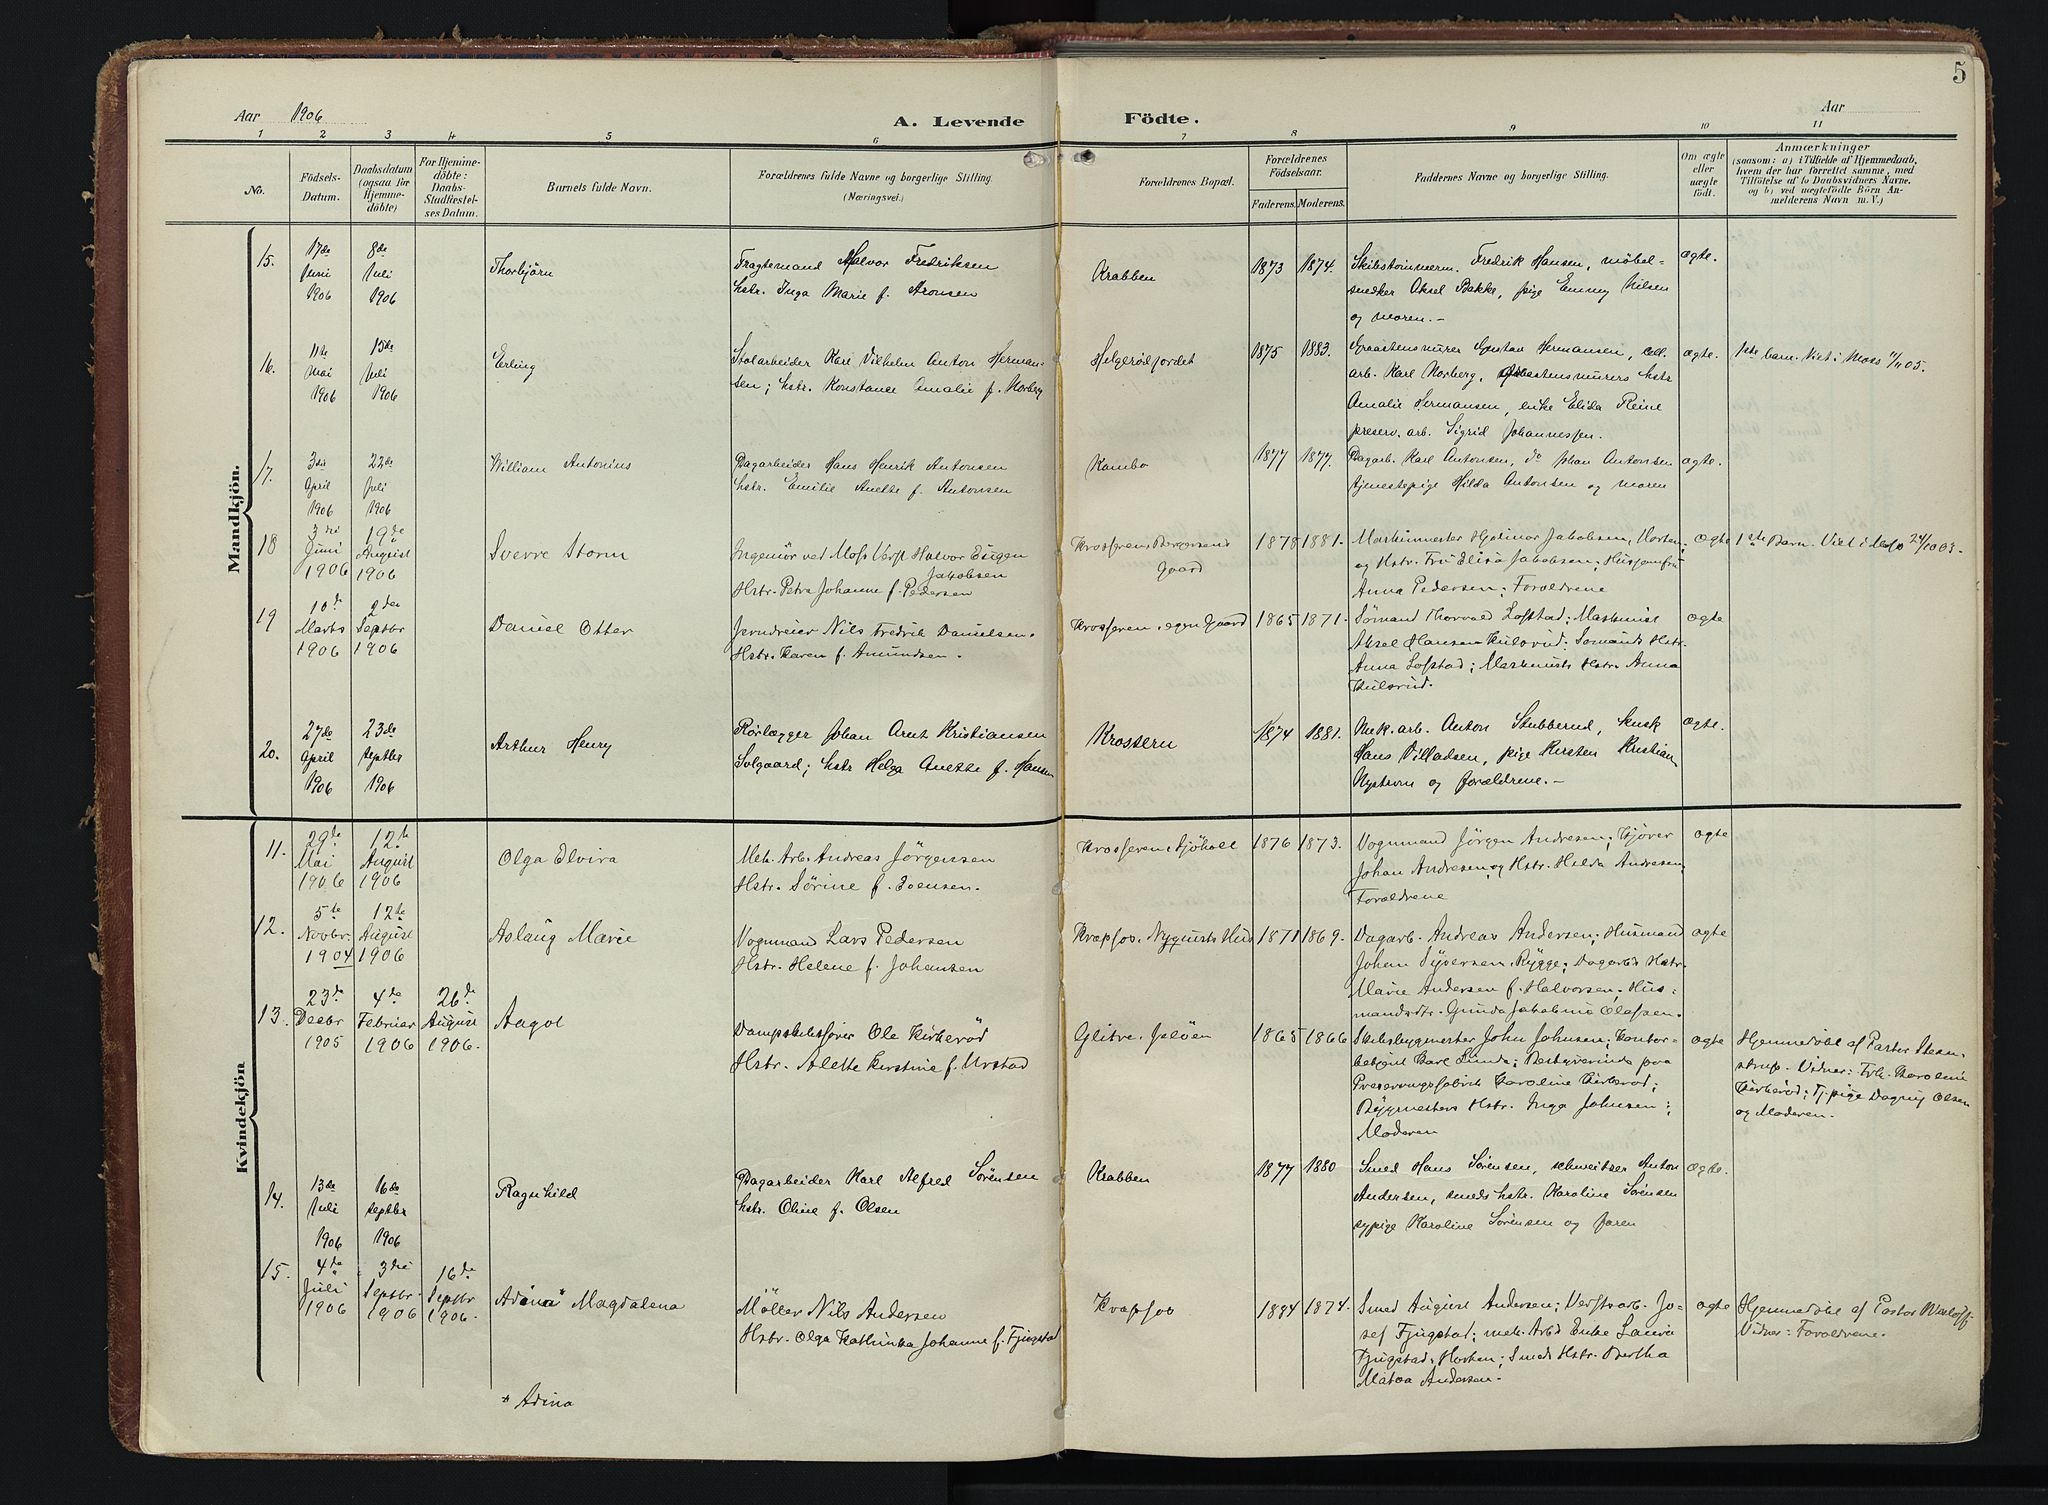 5
Aar 1906
A. Levende Födte.
Aar
1 2 3 4 5 6 7 8 9 10 11
No.
Födsels-Datum.
Daabsdatum (ogsaa for Hjemme-döbte)
For Hjemme-döbte: Daabs-Stadfæstel-ses Datum.
Barnets fulde Navn.
Forældrenes fulde Navne og borgerlige Stilling (Næringsvei.)
Forældrenes Bopæl.
Forældrenes Födselsaar.
Faderens. Moderens.
Faddernes Navne og borgerlige Stilling.
Om ægte eller uægte födt.
Anmærkninger
(saasom: a) i Tilfælde af Hjemmedaab, hvem der har forrettet samme, med Tilföielse af to Daabsvidners Navne, og b) ved uægtefödte Börn An-melderens Navn m. V.)
Mandkjön.
15. 17de Juni 1906
8de Juli 1906
Thorbjörn
Fragtemand Halvor Fredriksen
hstr. Inga Marie f. Aronsen
Krabben
1873 1874.
Skibstømmerm. Fredrik Hansen, möbel-
snedker Aksel Bakke, pige Emmy Nilsen
og moren.-
ægte.
16. 11te Mai 1906
15de Juli 1906
Erling
Stolarbeider Karl Vilhelm Anton Herman-
sen; hstr. Konstance Amalie f. Norberg
Helgerödfjordet
1875 1883.
Graastensmurer Gustav Hermansen, cell.
arb. Karl Norberg, graastensmurers hstr
Amalie Hermansen, enke Elida Reine
preserv. arb. Sigrid Johannessen.
ægte.
1ste barn. Viet i Moss
17. 3die April 1906
22de Juli 1906
William Antonius
Dagarbeider Hans Henrik Antonsen
hstr. Emilie Anette f. Antonsen
Kambo
1877 1877.
Dagarb. Karl Antonsen, do Johan Antonsen
tjenestepige Hilda Antonsen og moren
ægte.
18 3die Juni 1906
19de August 1906
Sverre Storm
Ingeniör ved Moss Værft Halvor Eugen
Jakobsen
Hstr. Petra Johanne f. Pedersen
Krosseren, Bergersens
Gaard
1878 1881.
Maskinmester Hjalmar Jakobsen, Horten;
og Hstr. Fru Elisa Jakobsen; Husjomfru
Anna Pedersen; Forældrene
ægte
1ste Barn. Viet i Moss 24/10 03.
19 10de Marts 1906
2den Septbr 1906
Daniel Otter
Jerndreier Nils Fredrik Danielsen.
Hstr. Karen f. Amundsen.
Krosseren, egen Gaard
1865 1871.
Sömand Thorvald Lofstad; Maskinist
Aksel Hansen Kulsrud; Sömands Hstr.
Anna Lofstad; Maskinists Hstr. Anna
Kulsrud.
ægte
20. 27de April 1906
23de Septbr 1906
Arthur Henry
Rørlægger Johan Arnt Kristiansen
Solgaard; hstr Helga Anette f. Hansen
Krossern
1874 1881.
Mek. arb. Anton Stubberud, kusk
Hans Villadsen, pige Kirsten Kristian
Nystrom og forældrene.-
ægte.
Kvindekjön
11. 29de Mai 1906
12te August 1906
Olga Elvira
Mek. Arb. Andreas Jørgensen
Hstr. Sørine f. Evensen.
Krosseren, Sjöhall
1876 1873.
Vognmand Jörgen Andresen; Kjører
Johan Andresen, og Hstr. Hilda Andresen;
Forældrene
ægte
12. 5te Novbr. 1904
12te August 1906
Aslaug Marie
Vognmand Lars Pedersen
Hstr. Helene f. Johansen
Kræpfos, Nyquists Hus
1871 1869.
Dagarb. Andreas Andersen; Husmand
Johan Syversen, Rygge; Dagarb's Hstr.
Marie Andersen f. Halvorsen; Hus-
mandsdtr. Gunda Jakobine Olafsen.
ægte
13. 23de Decbr 1905
4de Februar 1906
26de August 1906.
Aagot
Dampskibsfører Ole Kirkeröd
Hstr. Alette Kirstine f. Urstad
Glitre, Jeløen
1865 1866
Skibsbygmester John Johnsen; Kontor-
betjent Carl Lunde; Bestyrerinde paa
Preservingsfabrik Karoline Kirkeröd;
Bygmesters Hstr. Inga Johnsen;
Moderen
ægte
Hjemmedöbt af Pastor Steen-
strup. Vidner: Frk. Karoline
Kirkeröd; Tj. pige Dagny Olsen
og Moderen.
14. 13de Juli 1906
16de Septbr 1906
Ragnhild
Dagarbeider Karl Alfred Sörensen
hstr. Oline f. Olsen
Krabben
1877 1880
Smed Hans Sørensen, schweitser Anton
Andersen, smeds hstr. Karoline Sørensen
sypige Karoline Sørensen og faren
ægte.
15. 4de Juli 1906
3die Septbr. 1906
16de Septbr 1906.
Adina* Magdalena
Möller Nils Andersen
Hstr. Olga Kathinka Johanne f. Fjugstad
Kræpfos
1874.
Smed August Andersen; Verftsarb. Jo-
sef Fjugstad; mek. Arbs Enke Laura
Fjugstad, Horten; Smeds Hstr. Bertha
Andersen.
ægte
Hjemmedöbt af Pastor
Vidner: Forældrene.
* Adina